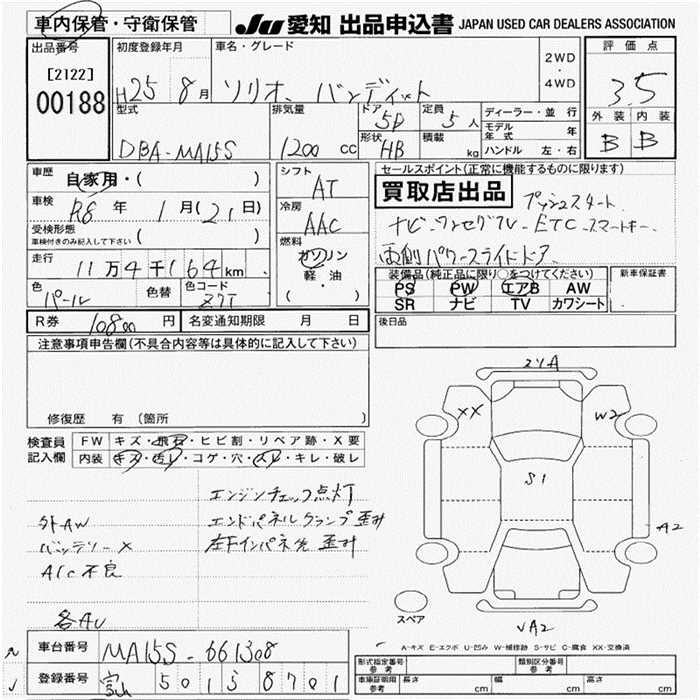 車内保管・守衛保管
JU 愛知 出品申込書 JAPAN USED CAR DEALERS ASSOCIATION
出品番号
[2122]
00188
初度登録年月
H25 8月
車名・グレード
ソリオ バンディット
2WD
・
4WD
評価点
3.5
外装 内装
B B
型式
DBA-MA15S
排気量
1200 cc
ドア
5D
形状
HB
定員
5人
積載
kg
ディーラー・並行
モデル年式 年
ハンドル 左・右
車歴
自家用・( )
車検
R8年 1月(21日)
受検形態
車検付きのみ記入して下さい ( )
走行
11万4千164km
色
パール
色替
色コード
Z7T
シフト
AT
冷房
AAC
燃料
ガソリン
軽・油
( )
セールスポイント(正常に機能するものに限ります)
買取店出品 プッシュスタート
ナビ-ワンセグTV-ETC-スマートキー
両側パワースライドドア
装備品(純正品に限り○をつけてください)
PS PW エアB AW
SR ナビ TV カワシート
新車保証書
R券 10800円
名変通知期限 月 日
後日品
注意事項申告欄(不具合内容等は具体的に記入して下さい)
修復歴 有 (箇所 )
検査員記入欄
FW キズ・飛石・ヒビ割・リペア跡・X要
内装 キズ・汚レ・コゲ・穴・スレ・キレ・破レ
エンジンチェック点灯
外AW エンドパネルクランプ歪み
バッテリーX 左Fインパネ先歪み
A/C不良
各AU
24A
XX
W2
S1
A2
VA2
スペア
A-キズ E-エクボ U-凹み W-補修跡 S-サビ C-腐食 XX-交換済
車台番号 MA15S-661308
登録番号 富山 501 5 8701
形式指定番号 参考
類別区分番号 参考
車庫証明用 参考
長さ cm
幅 cm
高さ cm